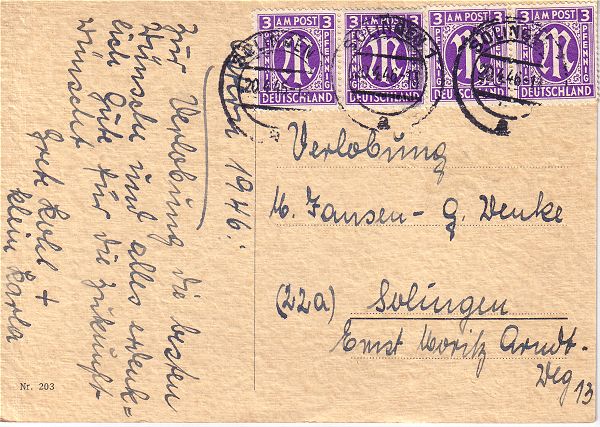 3 AM POST 3
PFENNIG
DEUTSCHLAND
3 AM POST 3
PFENNIG
DEUTSCHLAND
3 AM POST 3
PFENNIG
DEUTSCHLAND
3 AM POST 3
PFENNIG
DEUTSCHLAND
SOLINGEN
20.4.46
a
Verlobung
M. Jansen - G. Wenke
(22a) Solingen
Ernst Moritz Arndt-
Weg 13
Ostern 1946.
Zur Verlobung die besten
Wünsche und alles erdenk-
lich Gute für die Zukunft
wünscht
Grete Kohl +
klein Karla
Nr. 203